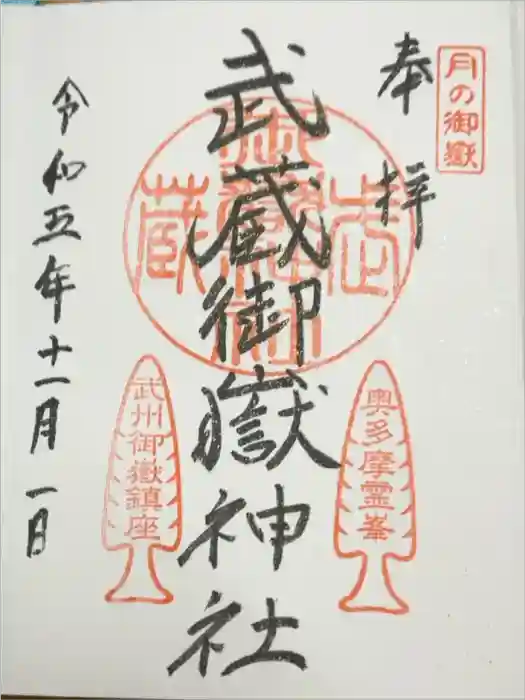 月の御嶽
奉拝
武蔵御嶽神社
奥多摩霊峯
武州御嶽鎮座
令和五年十一月一日